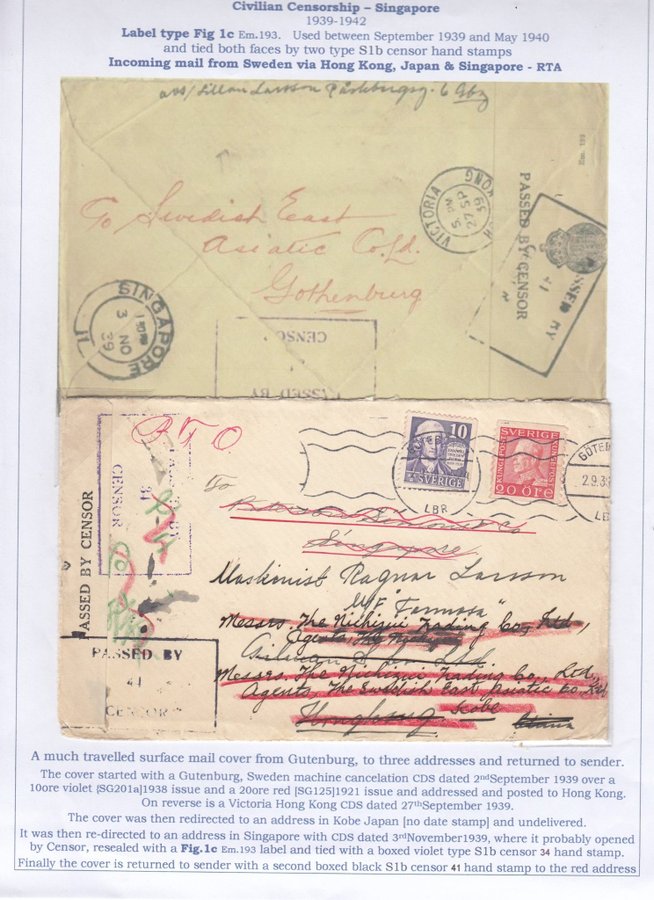 Civilian Censorship – Singapore
1939-1942
Label type Fig 1c Em.193. Used between September 1939 and May 1940
and tied both faces by two type S1b censor hand stamps
Incoming mail from Sweden via Hong Kong, Japan & Singapore - RTA
Larsson 6 Gbg
Em. 193
To Swedish East
Asiatic Co. Ld.
Gothenburg
VICTORIA HONG KONG
5 PM
27 SP
39
PASSED BY CENSOR
PASSED BY
41
SINGAPORE
1 30 PM
3 NO
39
11
CENSOR
PASSED BY
PASSED BY CENSOR
PASSED BY
34
CENSOR
PASSED BY
41
CENSOR
RTO
10
SVERIGE
SVERIGE
20 ÖRE
GÖTEBORG
LBR
GÖTEB
2.9.39
LB
To
Singapore
Maskinist Ragnar Larsson
M/S "Formosa"
Messrs. The Nichizui Trading Co., Ltd,
Agents, The
Gilman & Co Ltd.
Messrs. The Nichizui Trading Co., Ltd.,
Agents, The Swedish East Asiatic Co, Ltd
Hongkong Kobe China
A much travelled surface mail cover from Gutenburg, to three addresses and returned to sender.
The cover started with a Gutenburg, Sweden machine cancelation CDS dated 2ndSeptember 1939 over a
10ore violet {SG201a]1938 issue and a 20ore red [SG125]1921 issue and addressed and posted to Hong Kong.
On reverse is a Victoria Hong Kong CDS dated 27thSeptember 1939.
The cover was then redirected to an address in Kobe Japan [no date stamp] and undelivered.
It was then re-directed to an address in Singapore with CDS dated 3rdNovember1939, where it probably opened
by Censor, resealed with a Fig.1c Em.193 label and tied with a boxed violet type S1b censor 34 hand stamp.
Finally the cover is returned to sender with a second boxed black S1b censor 41 hand stamp to the red address